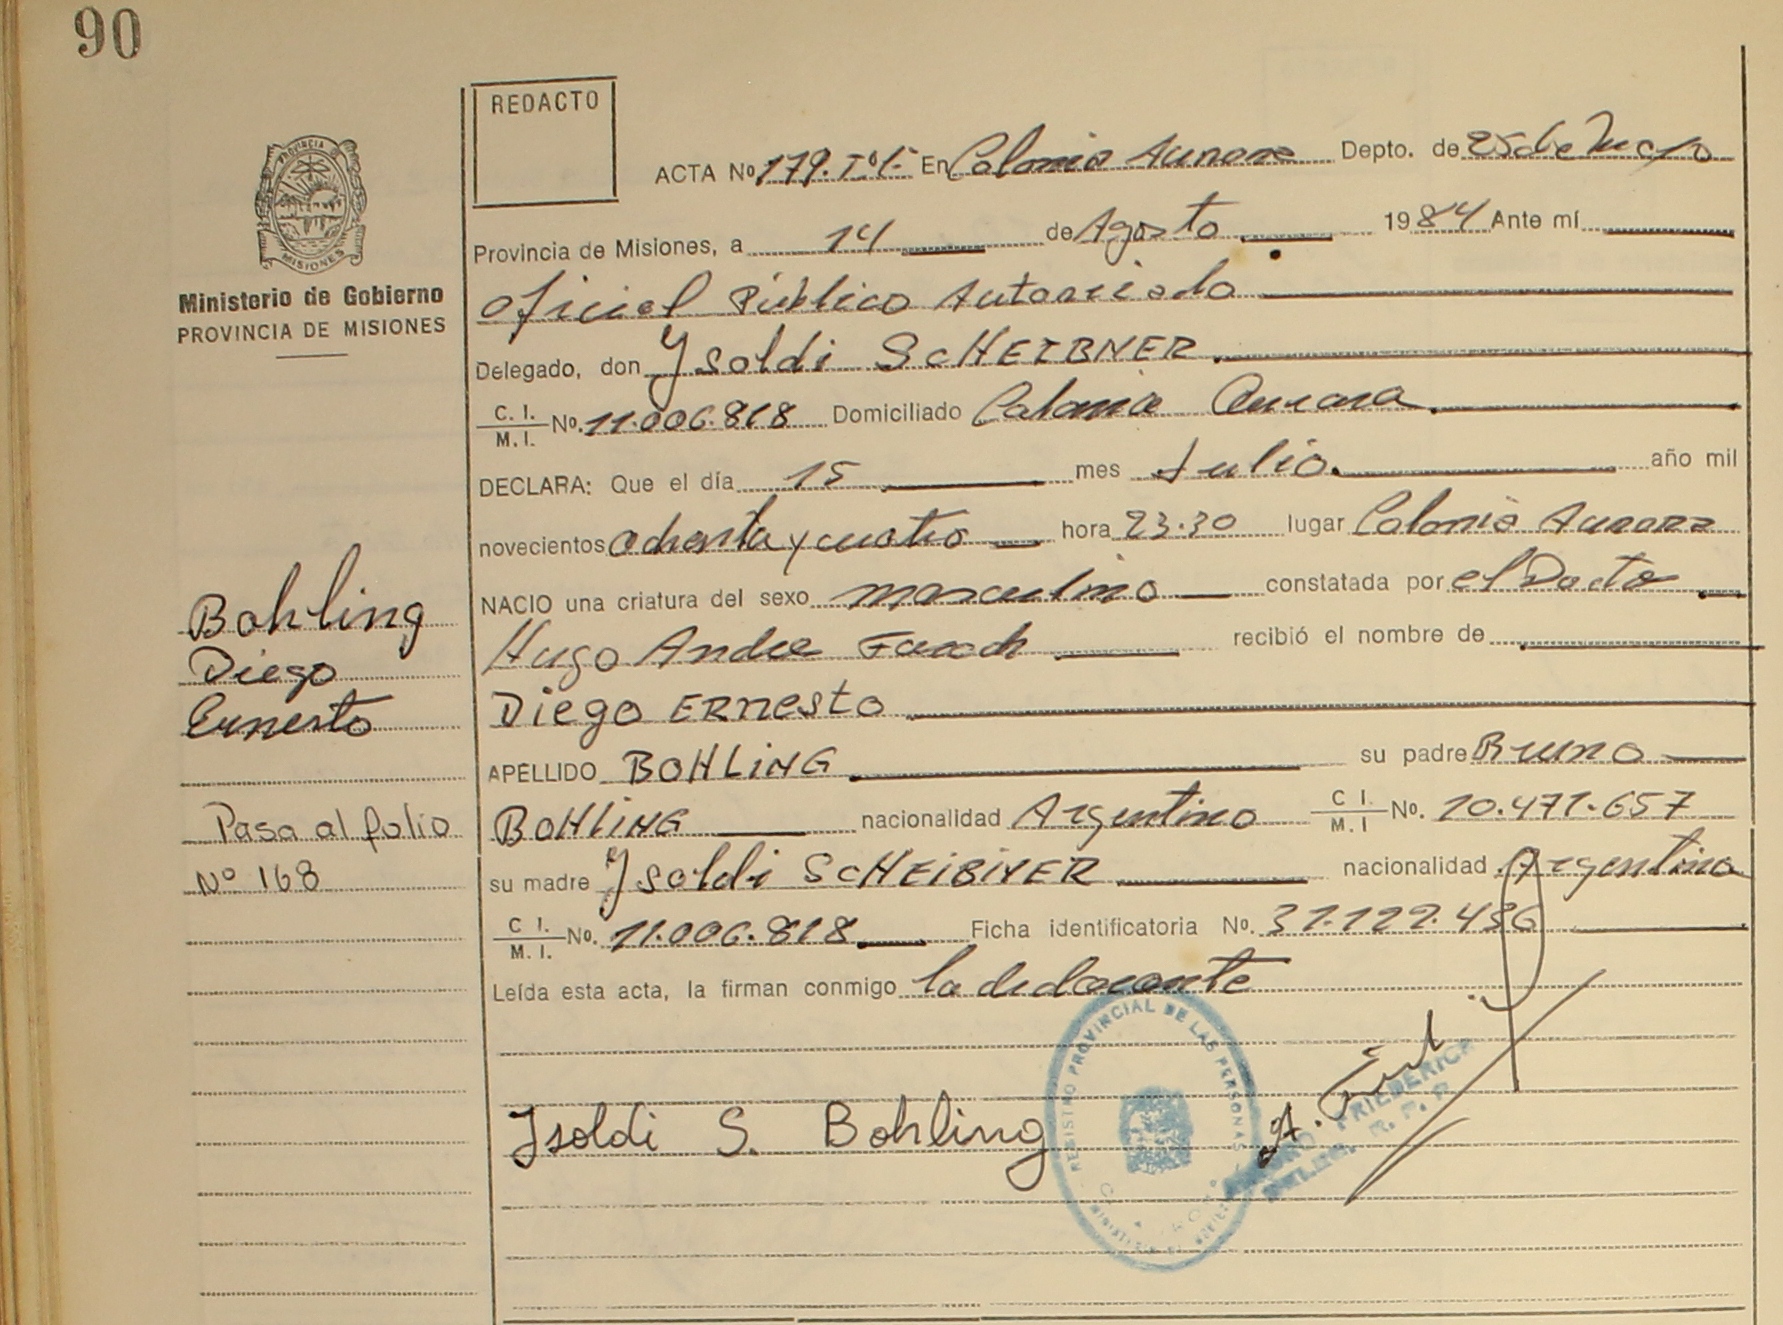 90
REDACTO
ACTA No 179. Tº 1- En Colonia Aurora Depto. de 25 de Mayo
Provincia de Misiones, a 14 de Agosto 1984 Ante mí
Oficial Público Autorizado
Delegado, don Ysoldi SCHEIBNER
C. I. M. I. No. 11.006.818 Domiciliado Colonia Aurora
DECLARA: Que el día 15 mes Julio. año mil
novecientos ochenta y cuatro hora 23.30 lugar Colonia Aurora
NACIO una criatura del sexo masculino constatada por el Docto
Hugo Andre recibió el nombre de
Diego Ernesto
APELLIDO BOHLING su padre Bruno
BOHLING nacionalidad Argentino C I. M. I No. 10.471.657
su madre Ysoldi SCHEIBNER nacionalidad Argentina
C I. M. I. No. 11.006.818 Ficha identificatoria No. 31.122.436
Leída esta acta, la firman conmigo la declarante
Isoldi S. Bohling
REGISTRO PROVINCIAL DE LAS PERSONAS
PROVINCIA
MISIONES
Ministerio de Gobierno
PROVINCIA DE MISIONES
Bohling
Diego
Ernesto
Pasa al folio
Nº 168